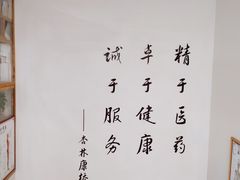 精于医药
卓于健康
誠于服务
——杏林康桥